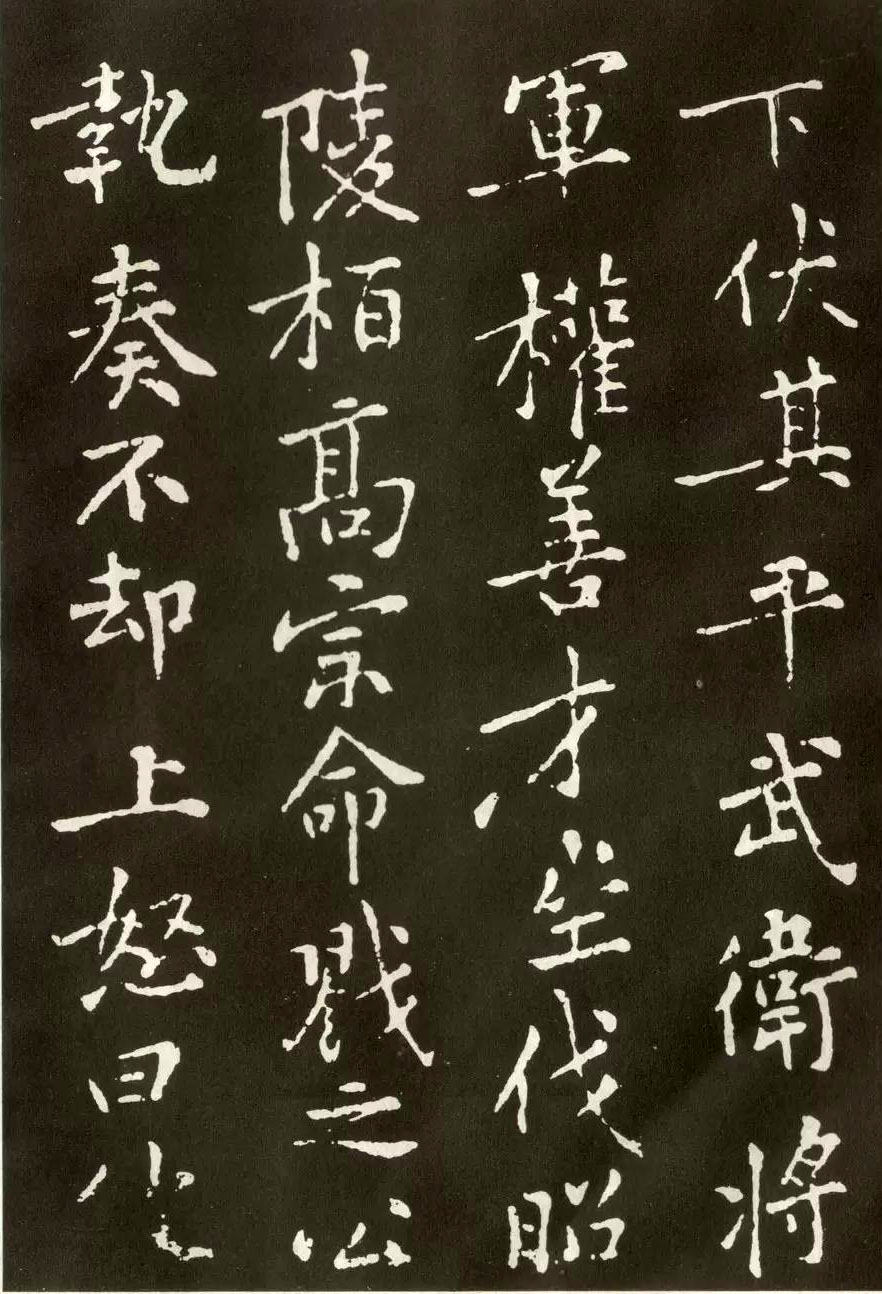 下伏其平武衛將
軍權善才坐伐昭
陵栢髙宗命戮之公
執奏不却上怒曰